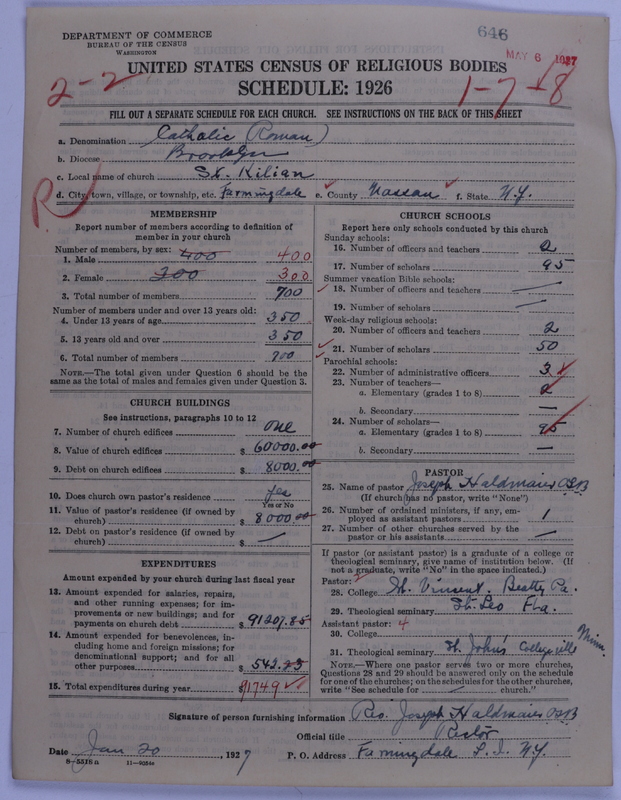 646
DEPARTMENT OF COMMERCE
BUREAU OF THE CENSUS
WASHINGTON
MAY 6 1927
UNITED STATES CENSUS OF RELIGIOUS BODIES
2-2
SCHEDULE: 1926
1-7-8
FILL OUT A SEPARATE SCHEDULE FOR EACH CHURCH. SEE INSTRUCTIONS ON THE BACK OF THIS SHEET
a. Denomination Catholic (Roman)
b. Diocese Brooklyn
c. Local name of church St. Kilian
d. City, town, village, or township, etc. Farmingdale e. County Nassau f. State N.Y.
R
MEMBERSHIP
Report number of members according to definition of
member in your church
Number of members, by sex:
1. Male 400 400
2. Female 300 300
3. Total number of members 700
Number of members under and over 13 years old:
4. Under 13 years of age 350
5. 13 years old and over 350
6. Total number of members 700
NOTE.—The total given under Question 6 should be the
same as the total of males and females given under Question 3.
CHURCH BUILDINGS
See instructions, paragraphs 10 to 12
7. Number of church edifices one
8. Value of church edifices $ 60000.00
9. Debt on church edifices $ 8000.00
10. Does church own pastor's residence yes
Yes or No
11. Value of pastor's residence (if owned by
church) $ 8000.00
12. Debt on pastor's residence (if owned by
church) $ —
EXPENDITURES
Amount expended by your church during last fiscal year
13. Amount expended for salaries, repairs,
and other running expenses; for im-
provements or new buildings; and for
payments on church debt $ 91207.85
14. Amount expended for benevolences, in-
cluding home and foreign missions; for
denominational support; and for all
other purposes $ 542.25
15. Total expenditures during year $ 91749
CHURCH SCHOOLS
Report here only schools conducted by this church
Sunday schools:
16. Number of officers and teachers 2
17. Number of scholars 95
Summer vacation Bible schools:
18. Number of officers and teachers —
19. Number of scholars —
Week-day religious schools:
20. Number of officers and teachers 2
21. Number of scholars 50
Parochial schools:
22. Number of administrative officers 3
23. Number of teachers—
a. Elementary (grades 1 to 8) 2
b. Secondary —
24. Number of scholars—
a. Elementary (grades 1 to 8) 95
b. Secondary —
PASTOR
25. Name of pastor Joseph Haldmaier OSB
(If church has no pastor, write "None")
26. Number of ordained ministers, if any, em-
ployed as assistant pastors 1
27. Number of other churches served by the
pastor or his assistants —
If pastor (or assistant pastor) is a graduate of a college or
theological seminary, give name of institution below. (If
not a graduate, write "No" in the space indicated.)
Pastor: 2
28. College St. Vincent. Beatty Pa.
29. Theological seminary St. Leo Fla.
Assistant pastor: 4
30. College
31. Theological seminary St. John's Collegeville Minn.
NOTE.—Where one pastor served two or more churches,
Questions 28 and 29 should be answered only on the schedule
for one of the churches; on the schedules for the other churches,
write "See schedule for — church."
Signature of person furnishing information Rev. Joseph Haldmaier OSB
Official title Rector
Date Jan 20, 1927 P. O. Address Farmingdale L.I. N.Y.
8-5516 a 11-9064